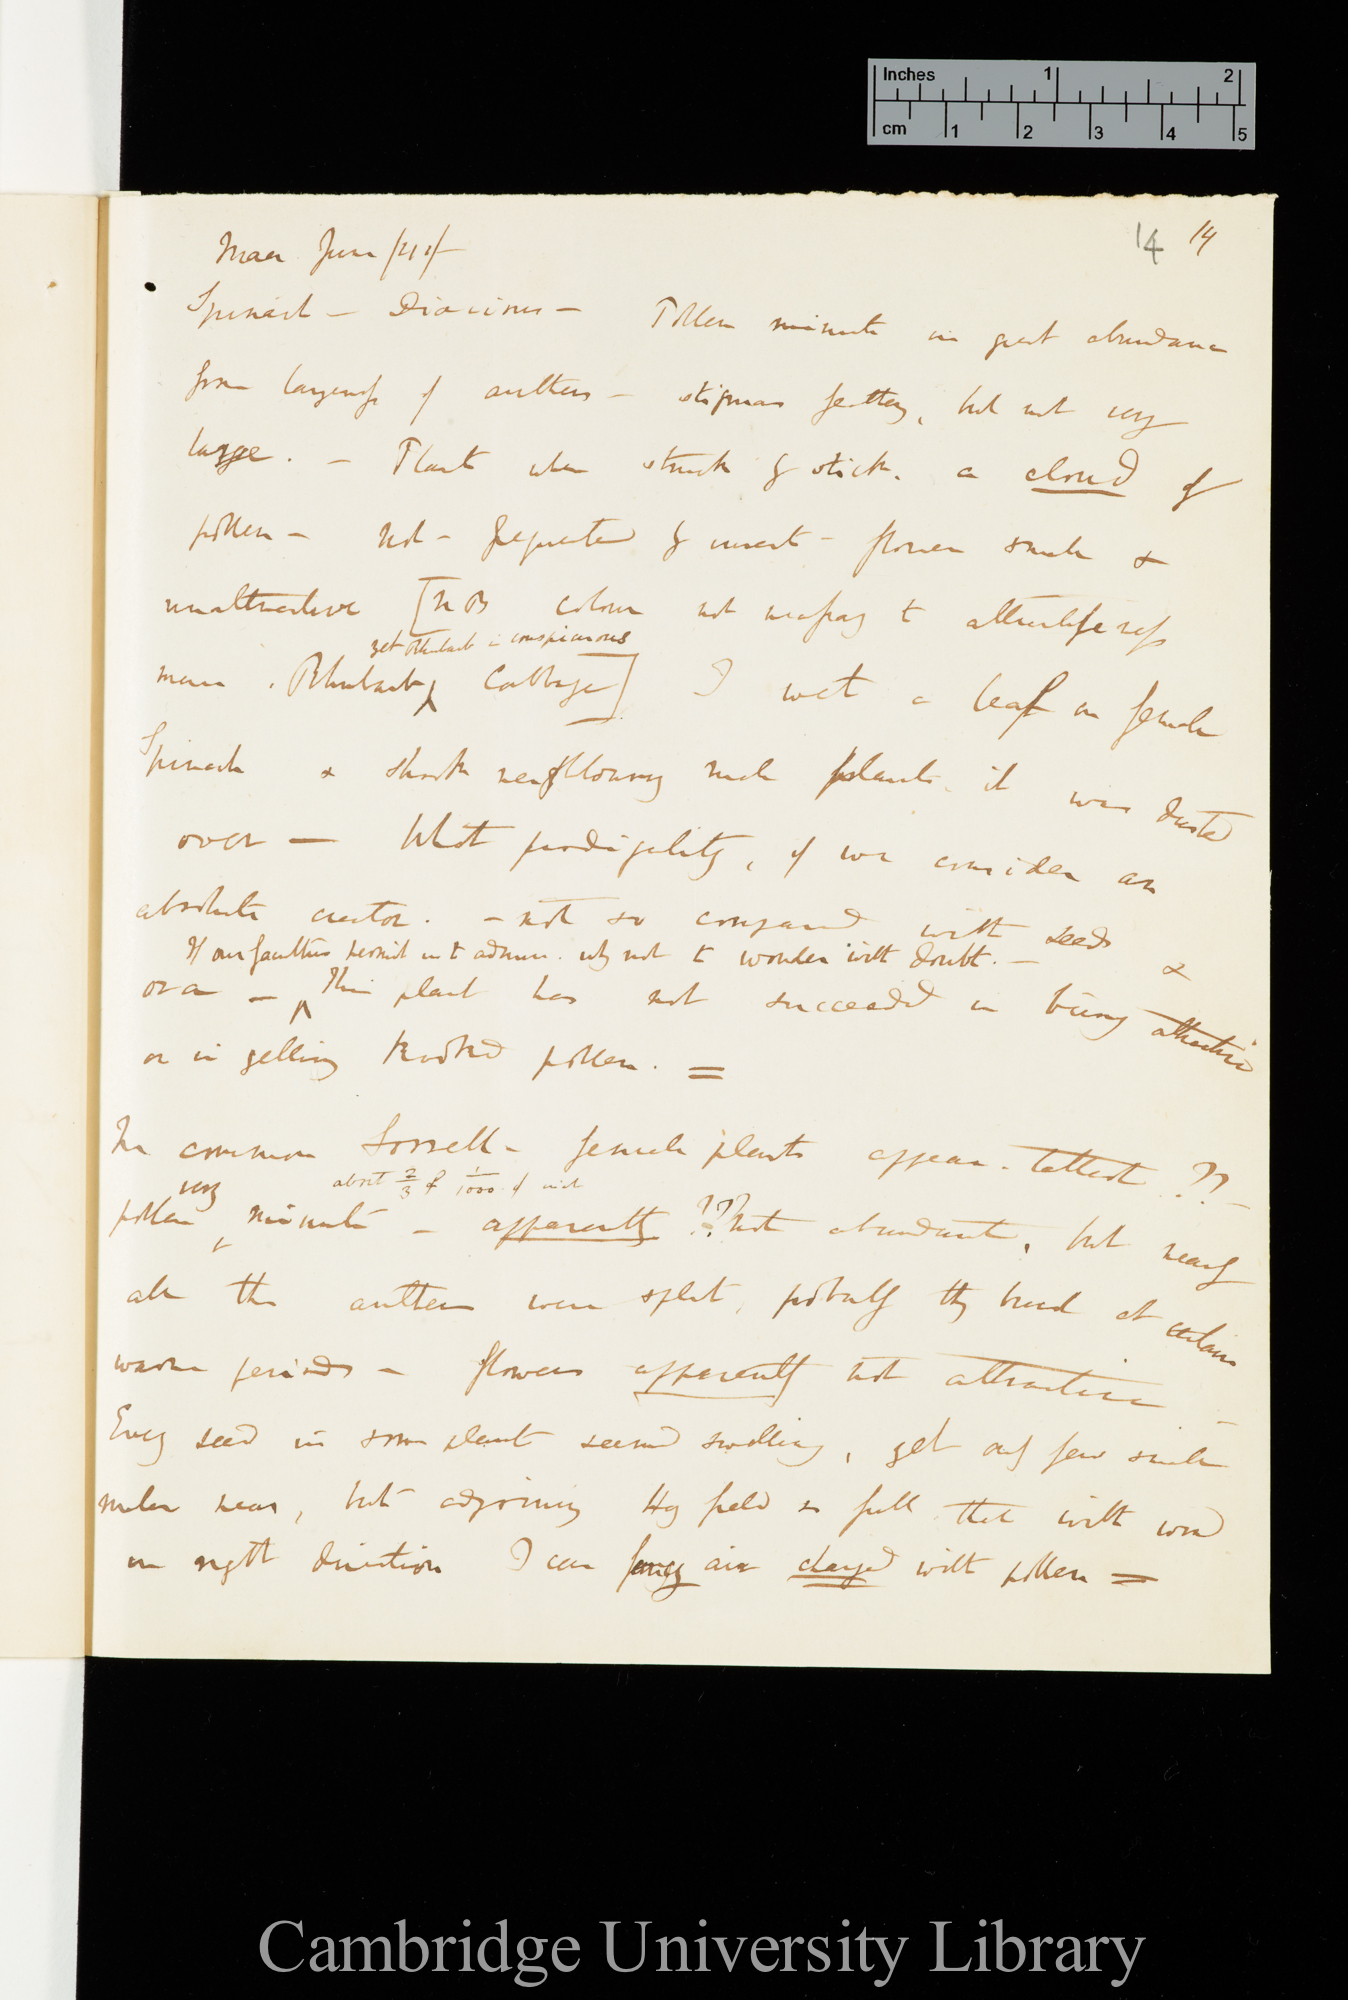 Inches 1 2
cm 1 2 3 4 5
14 14
Maer June /41/
Spinach — Diœcious — Pollen minute in great abundance
from largeness of anthers — stigmas feathery, but not very
large. — Plant when struck by stick. a cloud of
pollen — Not — frequented by insects — flower small &
unattractive [NB colour not necessary to attractiveness
yet Rhubarb is conspicuous
mean. Rhubarb, Cabbage] I wet a leaf on female
Spinach & shook neighbouring male plants. it was dusted
over — What prodigality, if we consider an
absolute creator. — not so compared with seeds &
If our faculties permit us to admire. why not to wonder with doubt. —
ova — This plant has not succeeded in being attractive
or in getting hooked pollen. =
In common Sorrell — female plants appear — tallest ?? —
very about 2/3 of 1/1000 of inch
pollen minute — apparently ??? not abundant, but nearly
all the anthers were split, probably they burst at certain
warm periods — flowers apparently not attractive —
Every seed in some plant seemed swelling, yet only few small
males near, but adjoining Hay field so full that with wind
in right direction I can fancy air charged with pollen =
Cambridge University Library